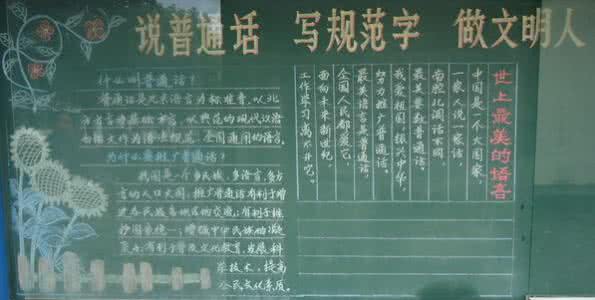 说普通话 写规范字 做文明人
什么叫普通话?
普通话是以北
京语音为标准音,以北
方话为基础方言,以典范的现代
白话文作为语法规范,全国通用的语言。
为什么要推广普通话?
我国是一个多民族、多语言、多方
言的人口大国,推广普通话有利于增
进各民族各地区的交流;有利于维
护国家统一;增强中华民族的凝
聚力;有利于普及文化教育,发展科
学技术,提高
全民文化素质。
世上最美的语言
中国是一个大国家,
一家人说一家话,
南腔北调话不同,
最美要数普通话。
我爱祖国,振兴中华,
努力推广普通话。
最美语言是普通话,
全国人民都爱它,
面向未来新世纪,
工作学习离不开它。